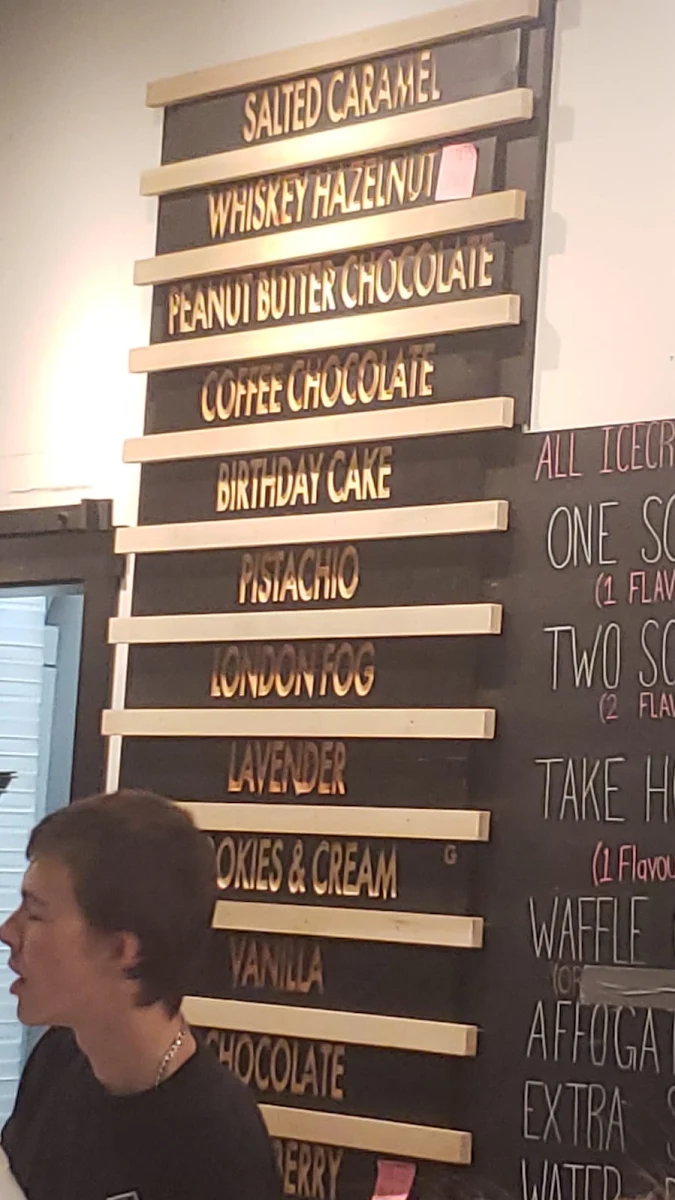 SALTED CARAMEL
WHISKEY HAZELNUT
PEANUT BUTTER CHOCOLATE
COFFEE CHOCOLATE
BIRTHDAY CAKE
PISTACHIO
LONDON FOG
LAVENDER
OKIES & CREAM G
VANILLA
CHOCOLATE
BERRY
ALL ICECR
ONE SC
(1 FLAV
TWO SC
(2 FLAV
TAKE HO
(1 Flavou
WAFFLE
(OR
AFFOGA
EXTRA S
WATER